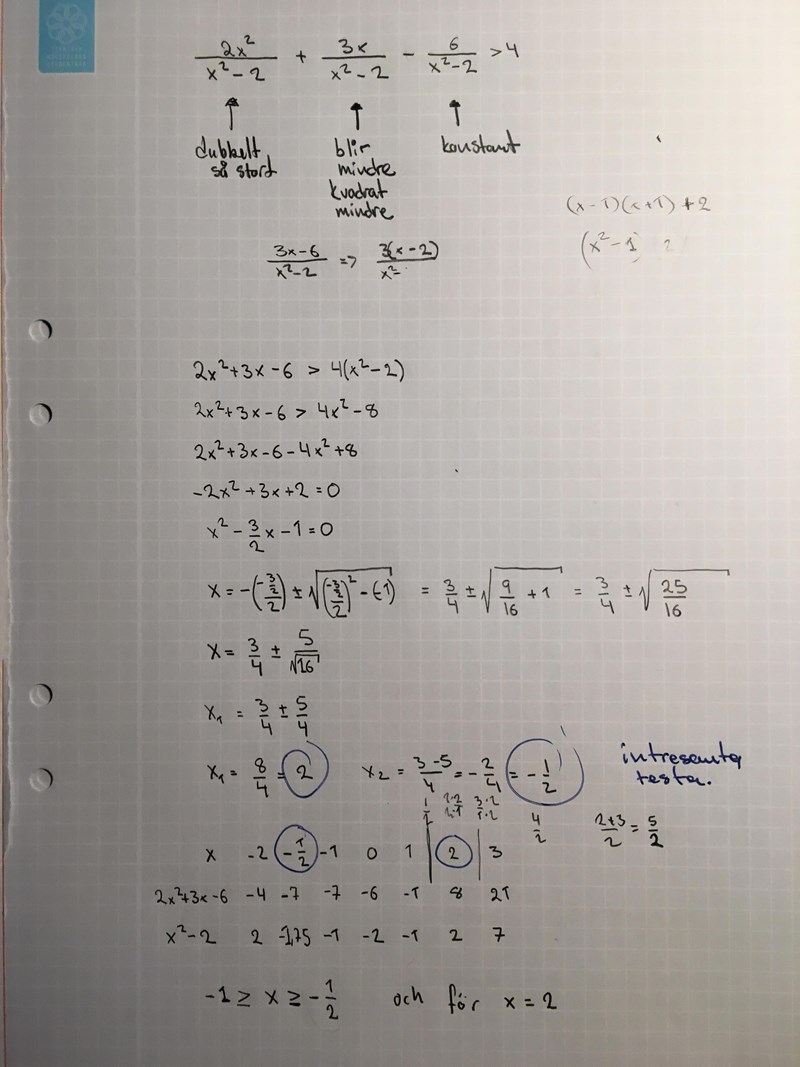 2x²/(x²-2) + 3x/(x²-2) - 6/(x²-2) > 4
↑ ↑ ↑
dubbelt så stort
blir mindre kvadrat mindre
konstant
(x-1)(x+1)+2
(x²-1)
(3x-6)/(x²-2) => 3(x-2)/x²-
2x²+3x-6 > 4(x²-2)
2x²+3x-6 > 4x²-8
2x²+3x-6-4x²+8
-2x²+3x+2=0
x²-3/2x-1=0
x=-(-3/2/2)±√((-3/2/2)²-(-1)) = 3/4±√(9/16+1) = 3/4±√(25/16)
x=3/4±5/√16
x₁=3/4±5/4
x₁=8/4=2 x₂=(3-5)/4=-2/4=-1/2
intresanta testa.
4/2 (2+3)/2=5/2
x -2 -1/2 -1 0 1 2 3
2x²+3x-6 -4 -7 -7 -6 -1 8 21
x²-2 2 -1,75 -1 -2 -1 2 7
-1 ≥ x ≥ -1/2 och för x = 2